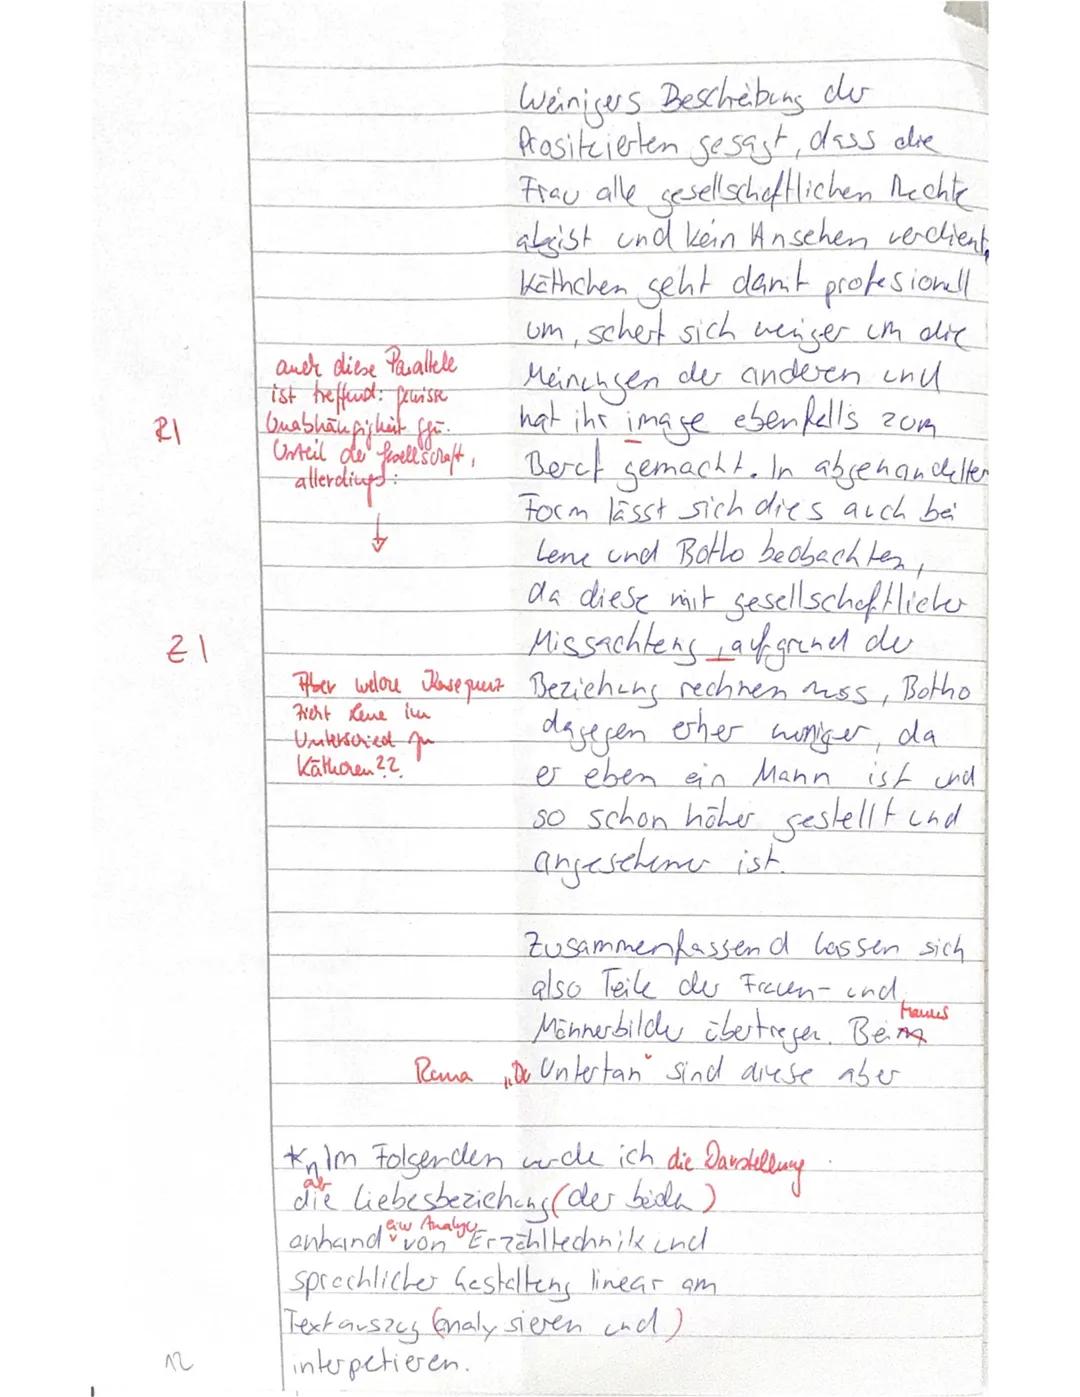 Weinigers Beschreibung der
Prositzierten gesagt, dass die
Frau alle gesellschaftlichen Rechte
abgist und kein Ansehen verdient,
Käthchen geht damit profesionell
um, schert sich weniger um die
Meinungen der anderen und
hat ihr image ebenfalls zum
Beruf gemacht. In abgehandelter
Form lässt sich dies auch bei
Lene und Botho beobachten,
da diese mit gesellschaftlicher
Missachtung, aufgrund der
Beziehung rechnen muss, Botho
dagegen eher weniger, da
er eben ein Mann ist und
so schon höher gestellt und
angesehener ist.
auch diese Parallele
ist treffend: gewisse
Unabhängigkeit ggü.
Urteil der Gesellschaft,
allerdings:
R1
Z1
Aber welche Konsequenz
zieht Lene im
Unterschied zu
Käthchen??
Zusammenfassend lassen sich
also Teile der Frauen- und
Männerbilder übertragen. Beim
Manns
Roma „Der Untertan" sind diese aber
*n Im Folgenden werde ich die Darstellung
ab
die Liebesbeziehung (der beiden)
eine Analyse
anhand von Erzähltechnik und
sprachlicher Gestaltung linear am
Textauszug (analysieren und)
interpetieren.
12